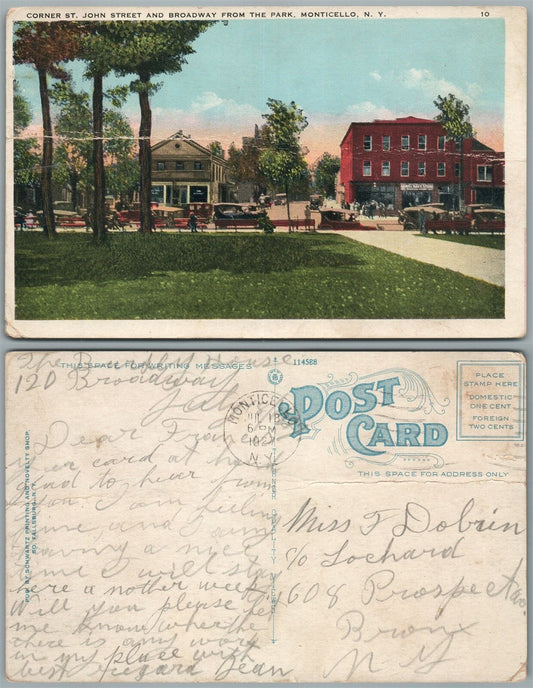 CORNER ST. JOHN STREET AND BROADWAY FROM THE PARK, MONTICELLO, N. Y.
10
The Bradley House
THIS SPACE FOR WRITING MESSAGES
114588
120 Broadway
July
MONTICELLO
JUL 18
6 PM
1927
N.Y.
POST CARD
PLACE
STAMP HERE
DOMESTIC
ONE CENT
FOREIGN
TWO CENTS
THIS SPACE FOR ADDRESS ONLY
PUB. BY SCHWARTZ PRINTING AND NOVELTY SHOP
SO. FALLSBURG, N.Y.
Dear Fran
your card at hand
Glad to hear from
you. I am feeling
fine and I am
having a nice
time I will stay
here a nother week
Will you please let
me know whether
there is any work
in my place with
best regard Jean
Miss F Dobrin
c/o Lochard
1608 Prospect av.
Bronx
N Y